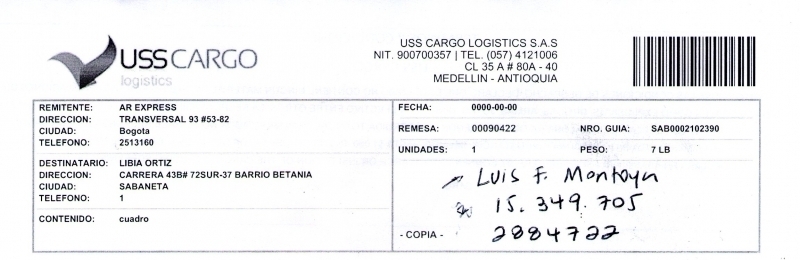 USSCARGO
logistics
USS CARGO LOGISTICS S.A.S
NIT. 900700357 | TEL. (057) 4121006
CL 35 A # 80A - 40
MEDELLIN - ANTIOQUIA
REMITENTE: AR EXPRESS
DIRECCION: TRANSVERSAL 93 #53-82
CIUDAD: Bogota
TELEFONO: 2513160
DESTINATARIO: LIBIA ORTIZ
DIRECCION: CARRERA 43B# 72SUR-37 BARRIO BETANIA
CIUDAD: SABANETA
TELEFONO: 1
CONTENIDO: cuadro
FECHA: 0000-00-00
REMESA: 00090422 NRO. GUIA: SAB0002102390
UNIDADES: 1 PESO: 7 LB
Luis F. Montoya
15.349.705
2884722
- COPIA -